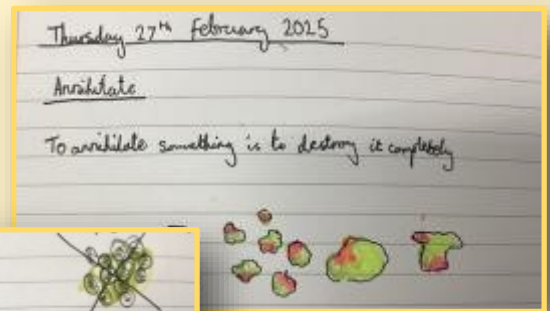 Thursday 27th February 2025
Annihilate
To annihilate something is to destroy it completely